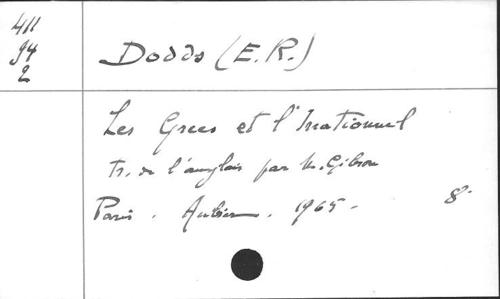 411
94
2
Dodds (E.R.)
Les Grecs et l'Irrationnel
tr. de l'anglais par M. Gibson
Paris. Aubier. 1965 - 8°